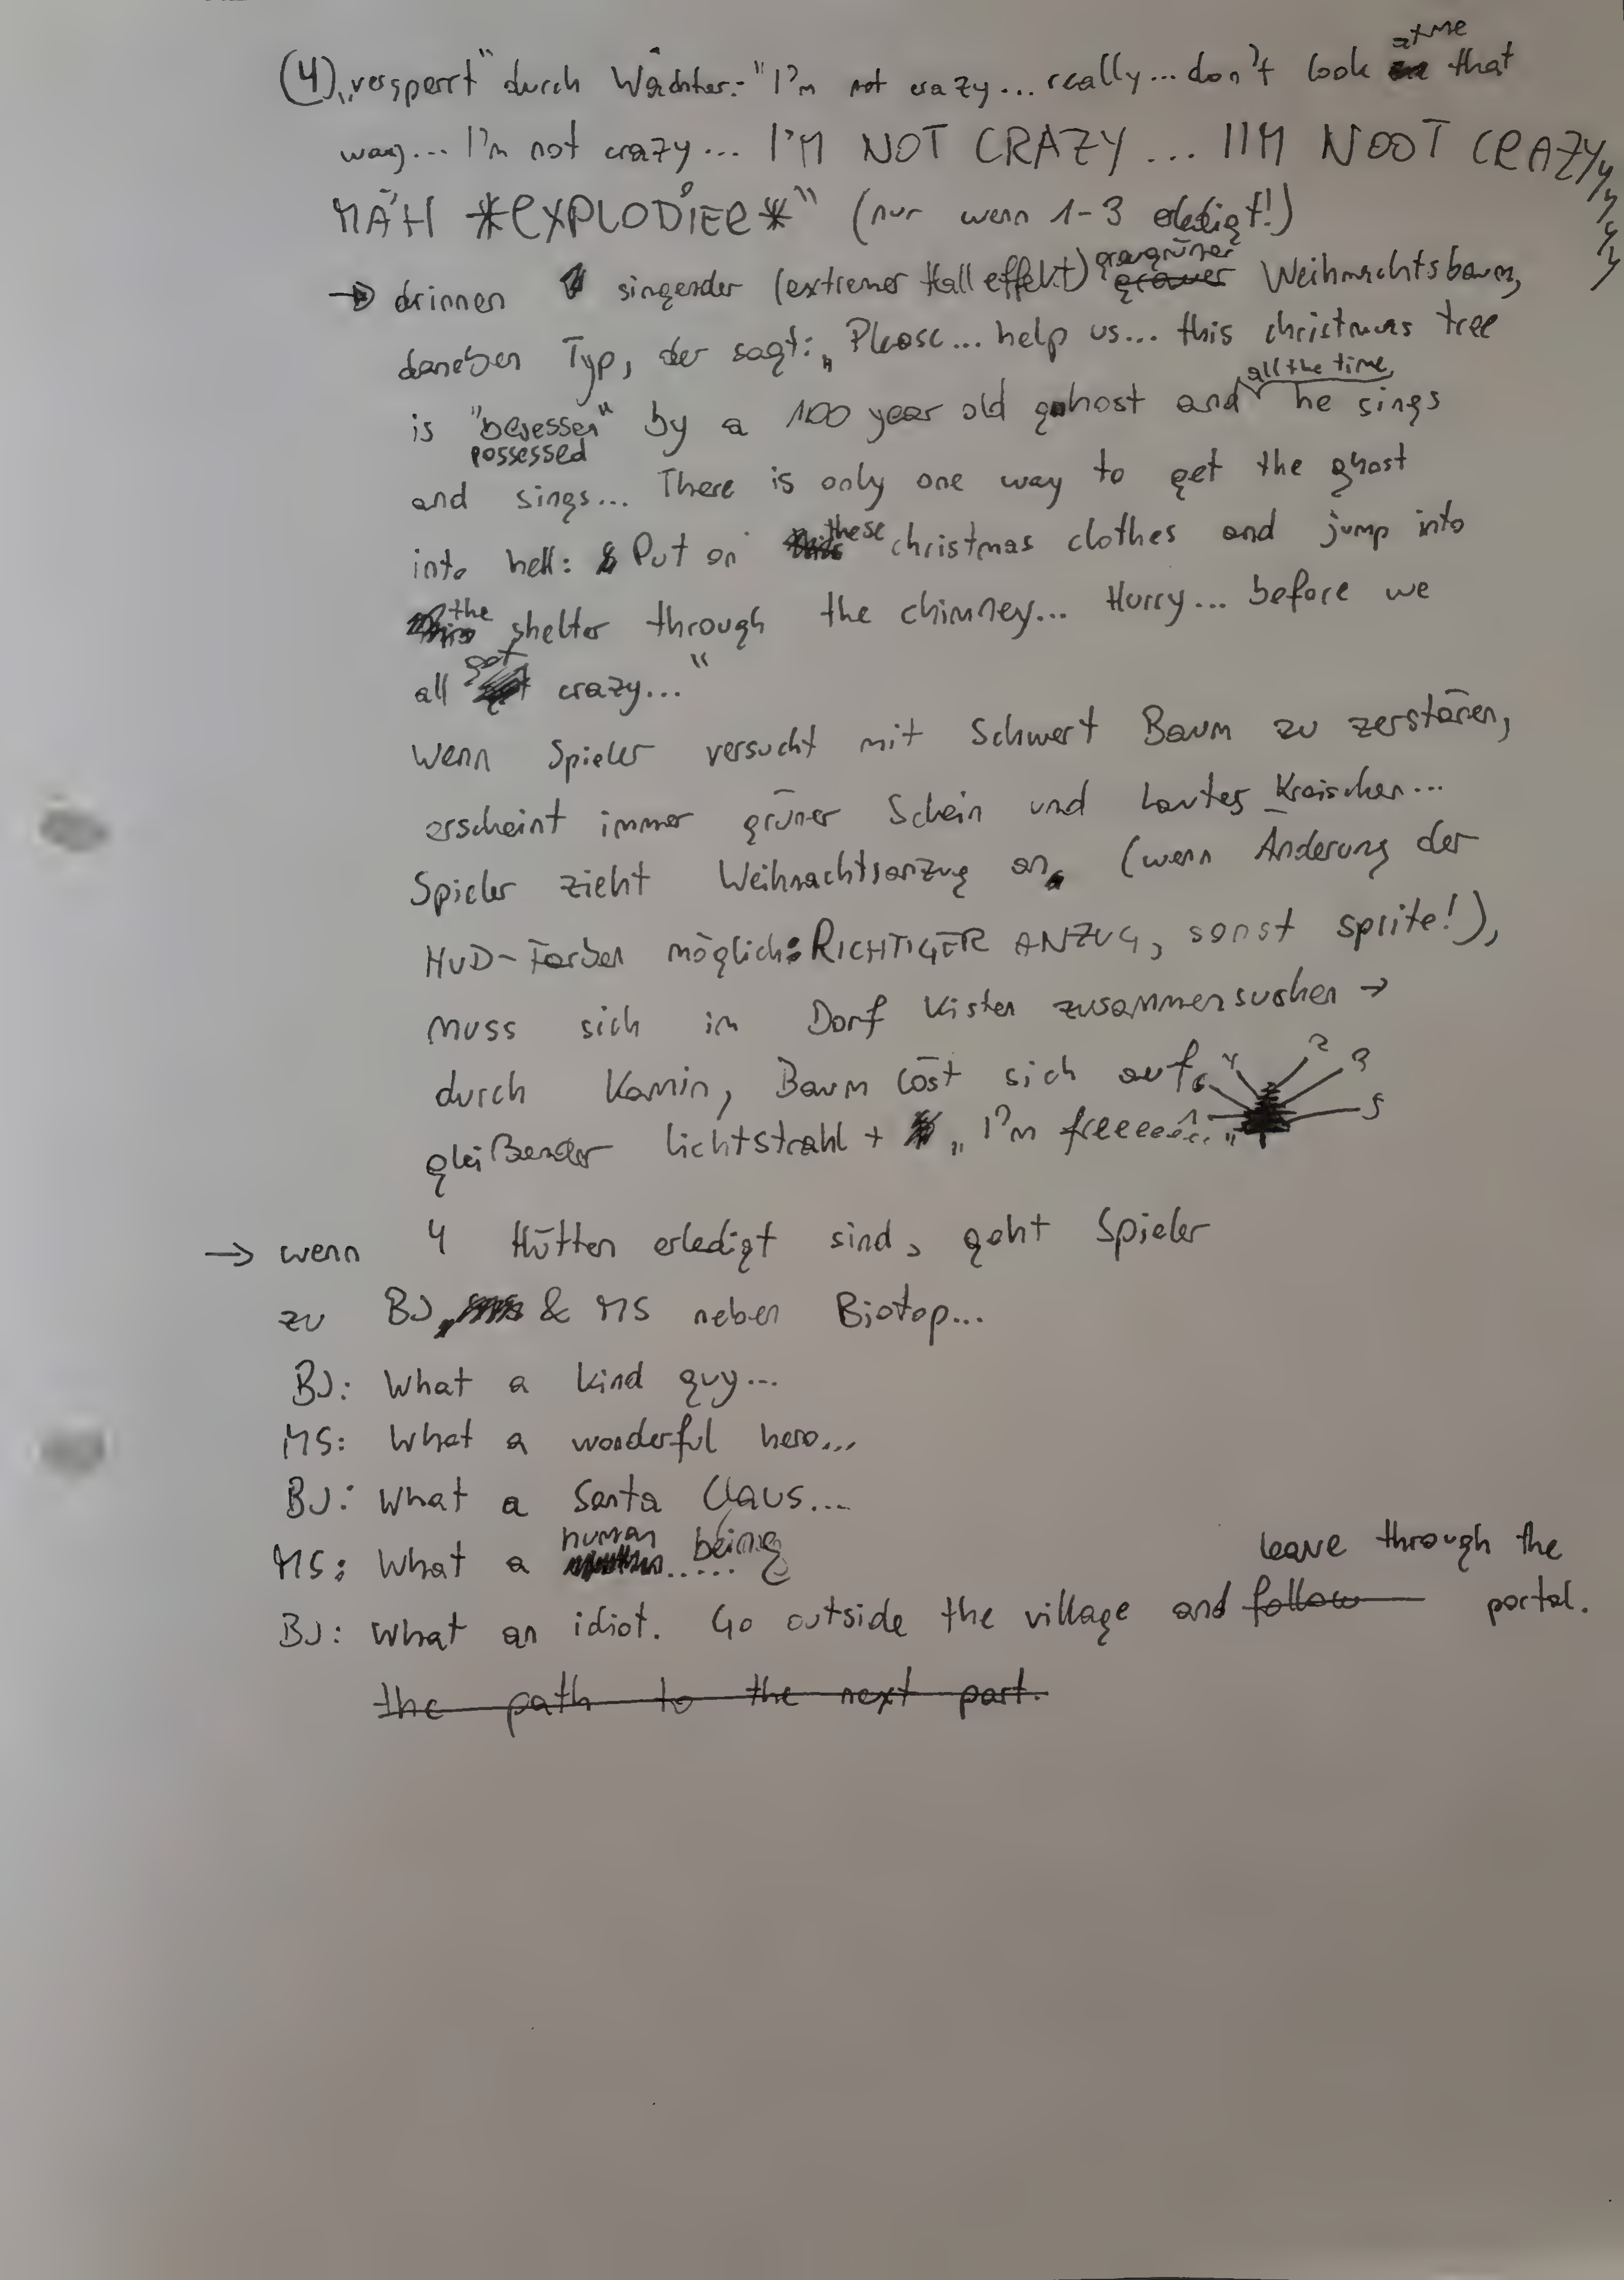 (4) „versperrt" durch Wächter: "I'm not crazy... really... don't look at me that
way... I'm not crazy... I'M NOT CRAZY... IIM NOOT CRAZYyyyyyy
MÄH *EXPLODIER*" (nur wenn 1-3 erledigt!)
→ drinnen singender (extremer Hall effekt) graugrüner grauer Weihnachtsbaum,
daneben Typ, der sagt: „Please... help us... this christmas tree
is "besessen" possessed by a 100 year old ghost and all the time he sings
and sings... There is only one way to get the ghost
into hell: Put on these christmas clothes and jump into
the shelter through the chimney... Hurry... before we
all get crazy..."
Wenn Spieler versucht mit Schwert Baum zu zerstören,
erscheint immer grüner Schein und lautes Kreischen...
Spieler zieht Weihnachtsanzug an (wenn Änderung der
HUD-Farben möglich: RICHTIGER ANZUG, sonst sprite!),
muss sich im Dorf Kisten zusammensuchen →
durch Kamin, Baum löst sich auf, 6 4 2 3
gleißender Lichtstrahl + „I'm freeeeee..." 1 5
→ wenn 4 Hütten erledigt sind, geht Spieler
zu BJ & MS neben Biotop...
BJ: What a kind guy...
MS: What a wonderful hero...
BJ: What a Santa Claus...
MS: What a human being.....
BJ: What an idiot. Go outside the village and follow leave through the portal.
the path to the next part.